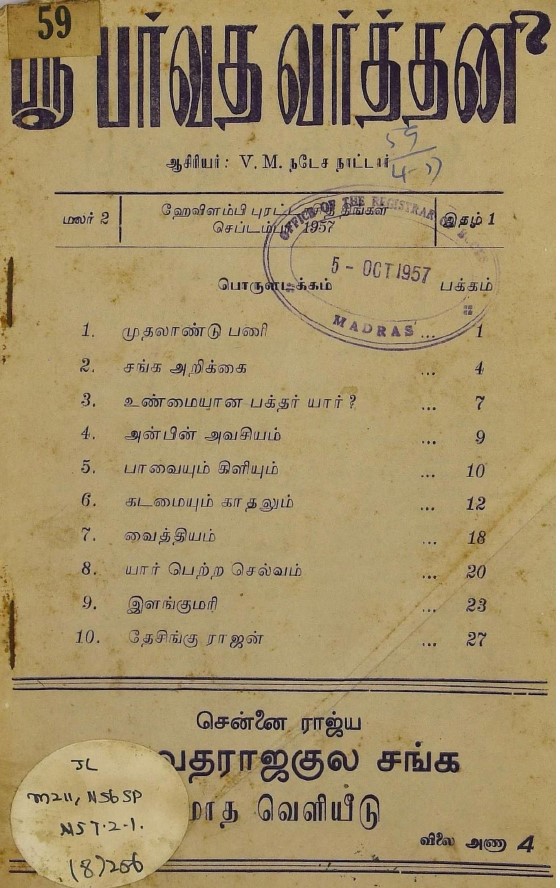 59
ஸ்ரீ பர்வத வர்த்தனி
ஆசிரியர்: V. M. நடேச நாட்டார்
59
4-57
மலர் 2
ஹேவிளம்பி புரட்டாசி திங்கள்
செப்டம்பர் 1957
இதழ் 1
OFFICE OF THE REGISTRAR OF
5 - OCT 1957
MADRAS
பொருளடக்கம் பக்கம்
1. முதலாண்டு பணி ... 1
2. சங்க அறிக்கை ... 4
3. உண்மையான பக்தர் யார்? ... 7
4. அன்பின் அவசியம் ... 9
5. பாவையும் கிளியும் ... 10
6. கடமையும் காதலும் ... 12
7. வைத்தியம் ... 18
8. யார் பெற்ற செல்வம் ... 20
9. இளங்குமரி ... 23
10. தேசிங்கு ராஜன் ... 27
சென்னை ராஜ்ய
வதராஜகுல சங்க
மாத வெளியீடு
விலை அணா 4
JL
m211, N56SP
N57.2.1.
(8)206